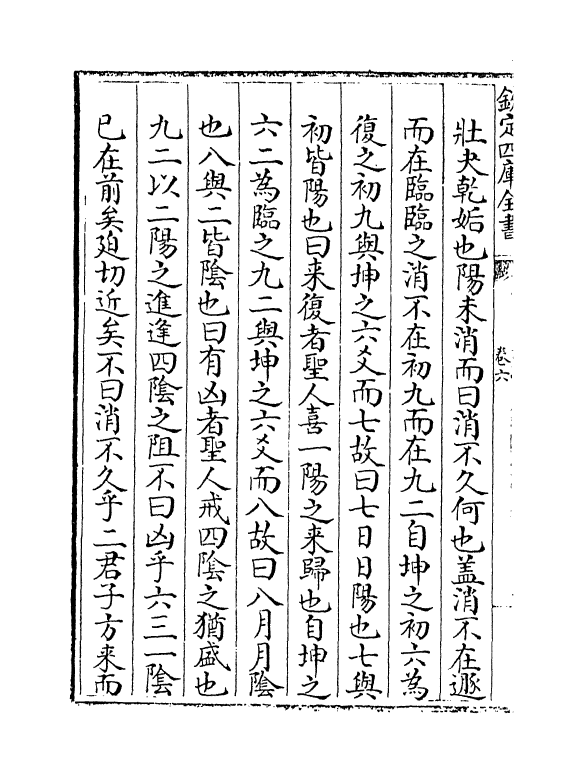 欽定四庫全書
卷六
壯夬乾姤也陽未消而曰消不久何也盖消不在遯
而在臨臨之消不在初九而在九二自坤之初六為
復之初九與坤之六爻而七故曰七日日陽也七與
初皆陽也曰来復者聖人喜一陽之来歸也自坤之
六二為臨之九二與坤之六爻而八故曰八月月陰
也八與二皆陰也曰有凶者聖人戒四陰之猶盛也
九二以二陽之進逢四陰之阻不曰凶乎六三一陰
已在前矣廹切近矣不曰消不久乎二君子方来而